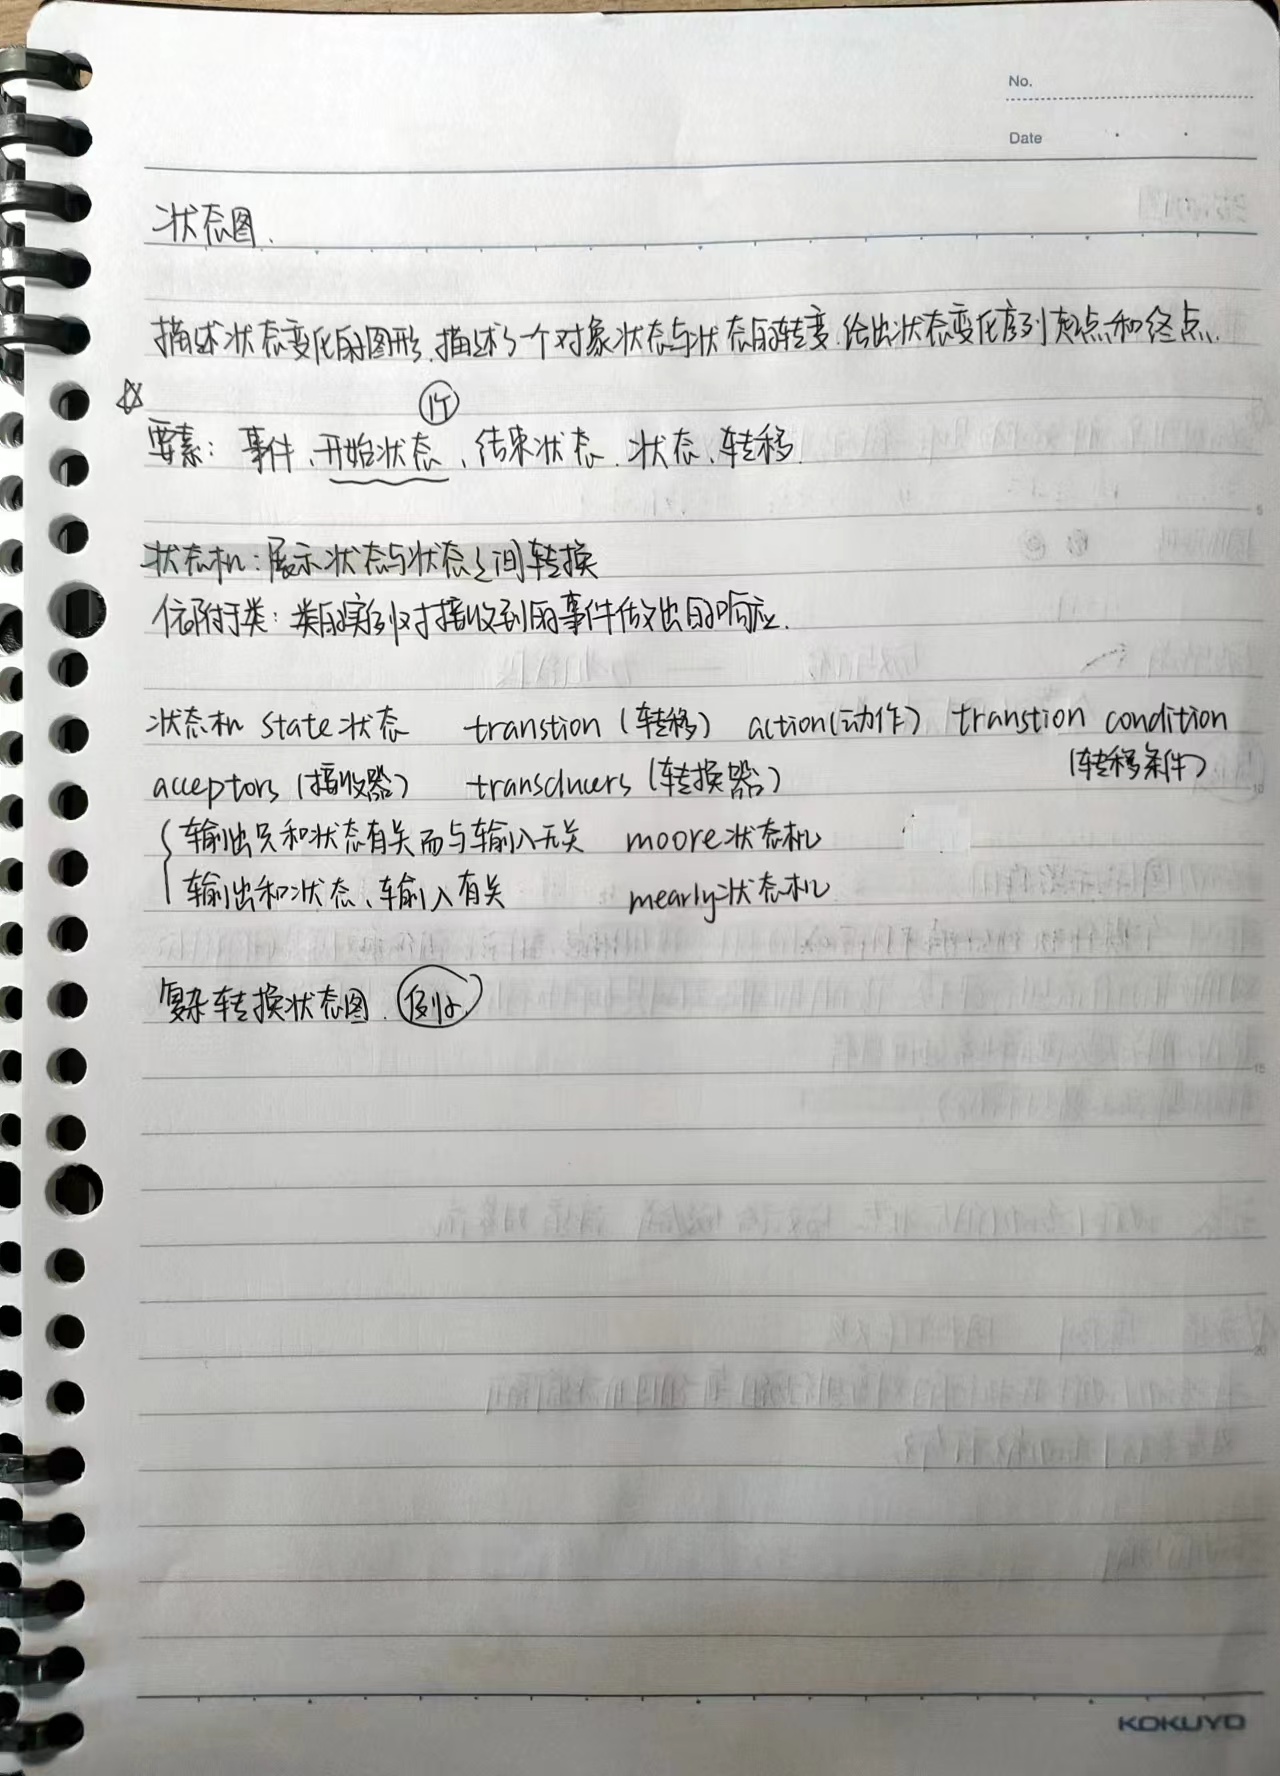 No.
Date
状态图.
描述状态变化的图形.描述了一个对象状态与状态的转变.给出状态变化序列起点和终点.
☆
1个
要素: 事件、开始状态、结束状态、状态、转移.
状态机:展示状态与状态之间转换
依附于类: 类的实例对接收到的事件做出的响应.
状态机 state状态 transtion (转移) action(动作) transtion condition
(转移条件)
acceptors (接收器) transducers (转换器)
输出只和状态有关而与输入无关 moore状态机
输出和状态、输入有关 mearly状态机
复杂转换状态图. 例如
KOKUYO